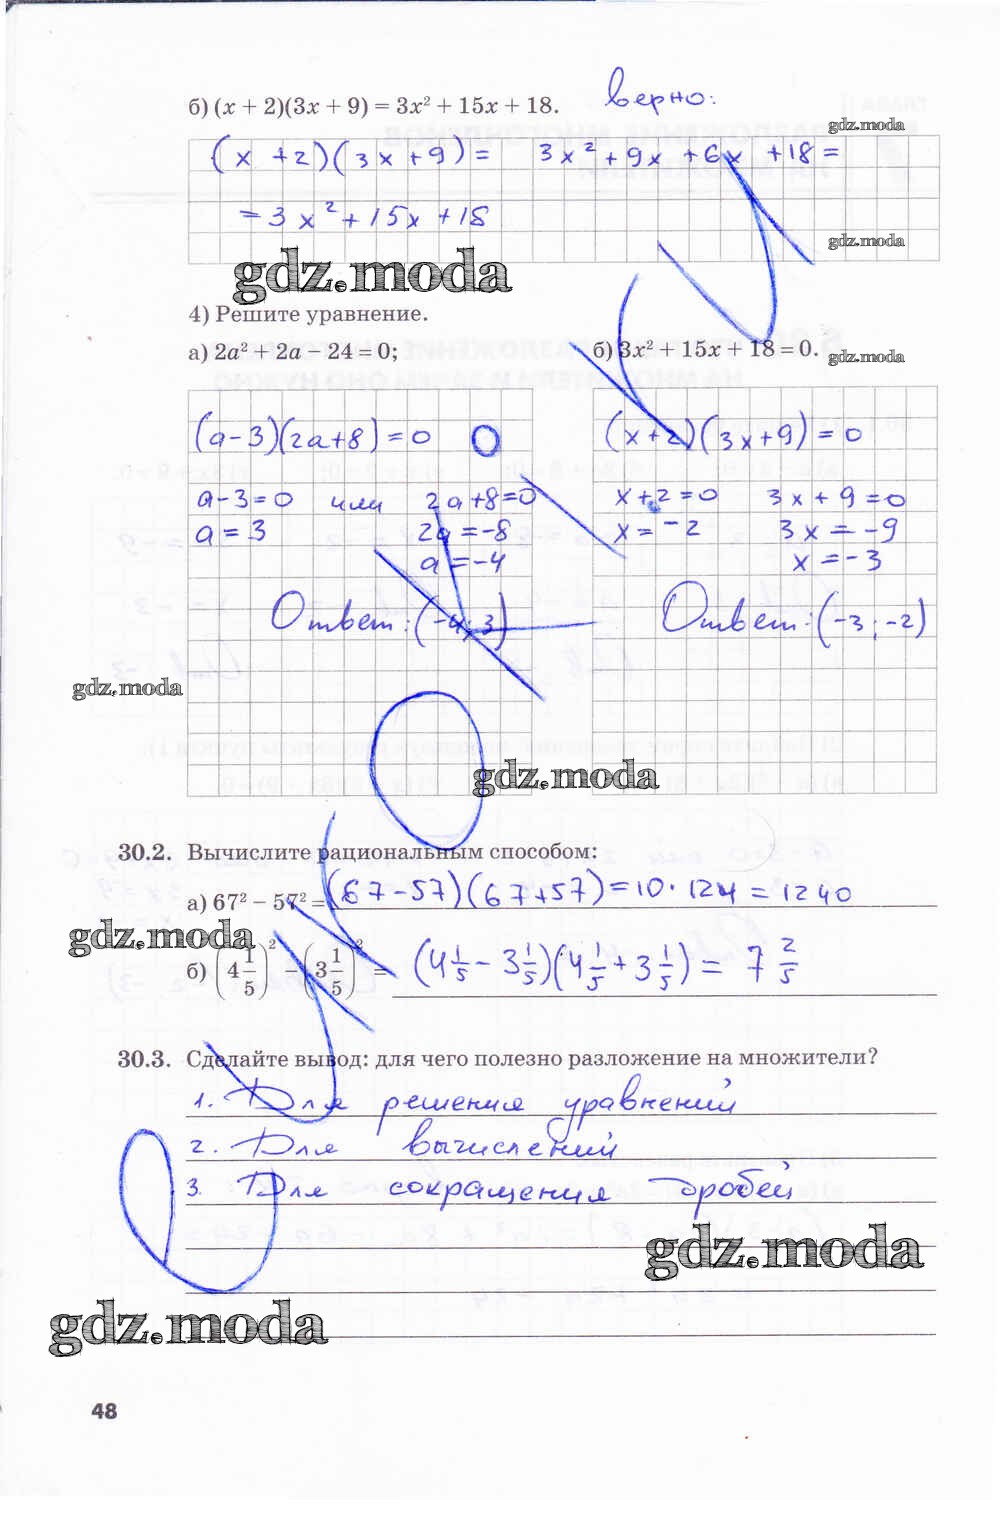 б) (x + 2)(3x + 9) = 3x² + 15x + 18. верно:
gdz.moda
(x + 2)(3x + 9) = 3x² + 9x + 6x + 18 =
= 3x² + 15x + 18
gdz.moda
gdz.moda
4) Решите уравнение.
а) 2a² + 2a − 24 = 0; б) 3x² + 15x + 18 = 0.
gdz.moda
(a−3)(2a+8) = 0 (x+2)(3x+9) = 0
a−3=0 или 2a+8=0 x+2=0 3x+9=0
a = 3 2a = −8 x = −2 3x = −9
a = −4 x = −3
Ответ: (−4; 3) Ответ: (−3; −2)
gdz.moda
gdz.moda
30.2. Вычислите рациональным способом:
а) 67² − 57² = (67−57)(67+57) = 10 · 124 = 1240
gdz.moda
б) (4 1/5)² − (3 1/5)² = (4 1/5 − 3 1/5)(4 1/5 + 3 1/5) = 7 2/5
30.3. Сделайте вывод: для чего полезно разложение на множители?
1. Для решения уравнений
2. Для вычислений
3. Для сокращения дробей
gdz.moda
gdz.moda
48